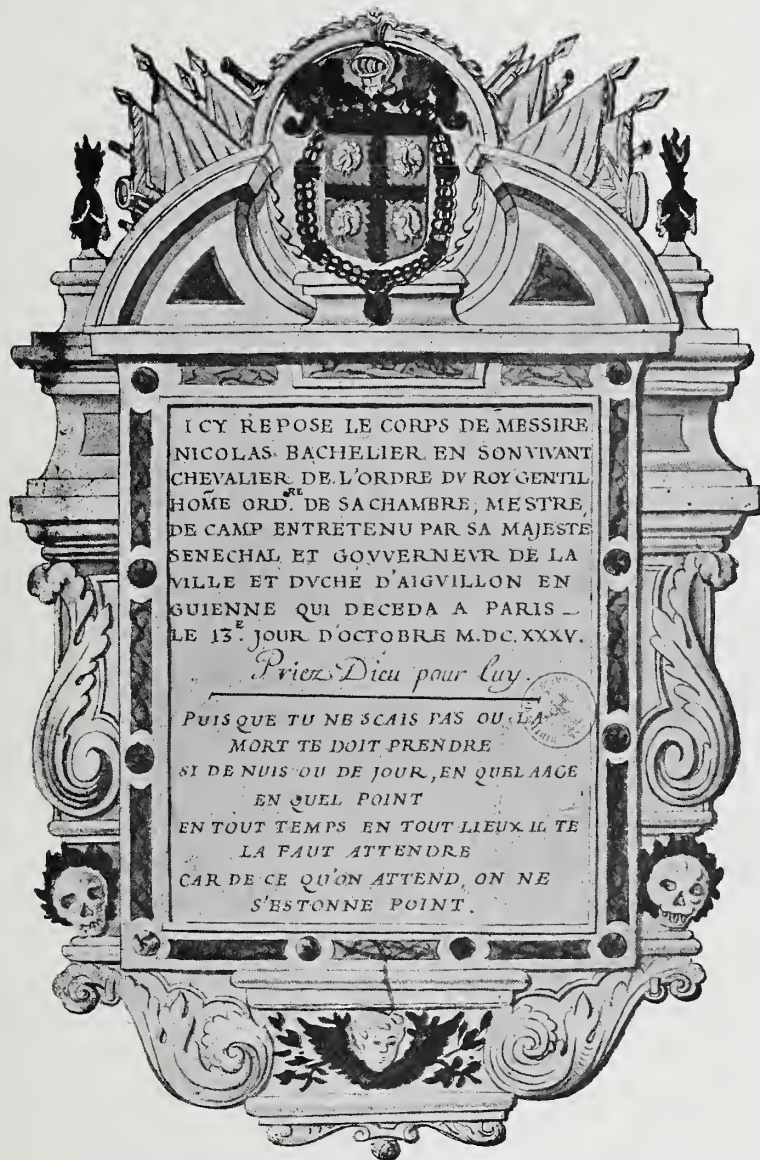 ICY REPOSE LE CORPS DE MESSIRE
NICOLAS BACHELIER EN SON VIVANT
CHEVALIER DE L'ORDRE DV ROY GENTIL
HOM̃E ORD.RE DE SA CHAMBRE, MESTRE
DE CAMP ENTRETENU PAR SA MAJESTE
SENECHAL ET GOVVERNEVR DE LA
VILLE ET DVCHE D'AIGVILLON EN
GUIENNE QUI DECEDA A PARIS _
LE 13.E JOUR D'OCTOBRE M.DC.XXXV.
Priez Dieu pour luy.
PUISQUE TU NE SCAIS PAS OU LA
MORT TE DOIT PRENDRE
SI DE NUIS OU DE JOUR, EN QUEL AAGE
EN QUEL POINT
EN TOUT TEMPS EN TOUT LIEUX IL TE
LA FAUT ATTENDRE
CAR DE CE QU'ON ATTEND, ON NE
S'ESTONNE POINT.